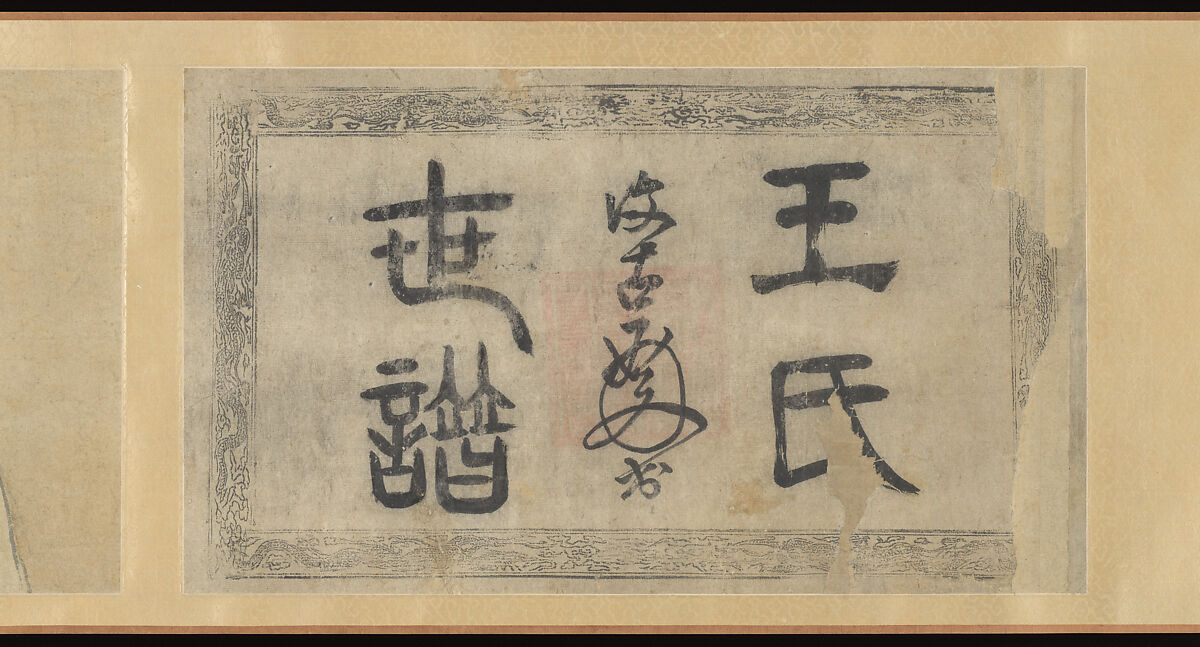 王氏
古 書
世譜